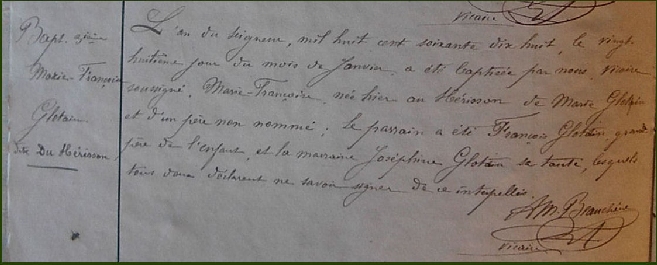 vicaire
Bapt.
Marie-Françoise
Glotain
dite Du Hérisson
L'an du Seigneur, mil huit cent soixante dix huit, le vingt
huitième jour du mois de Janvier, a été baptisée par nous, vicaire
soussigné, Marie-Françoise, née hier au Hérisson de Marie Glotain
et d'un père non nommé ; le parrain a été François Glotain grand
père de l'enfant, et la marraine Joséphine Glotain sa tante, lesquels
tous deux déclarent ne savoir signer de ce interpellés
vicaire